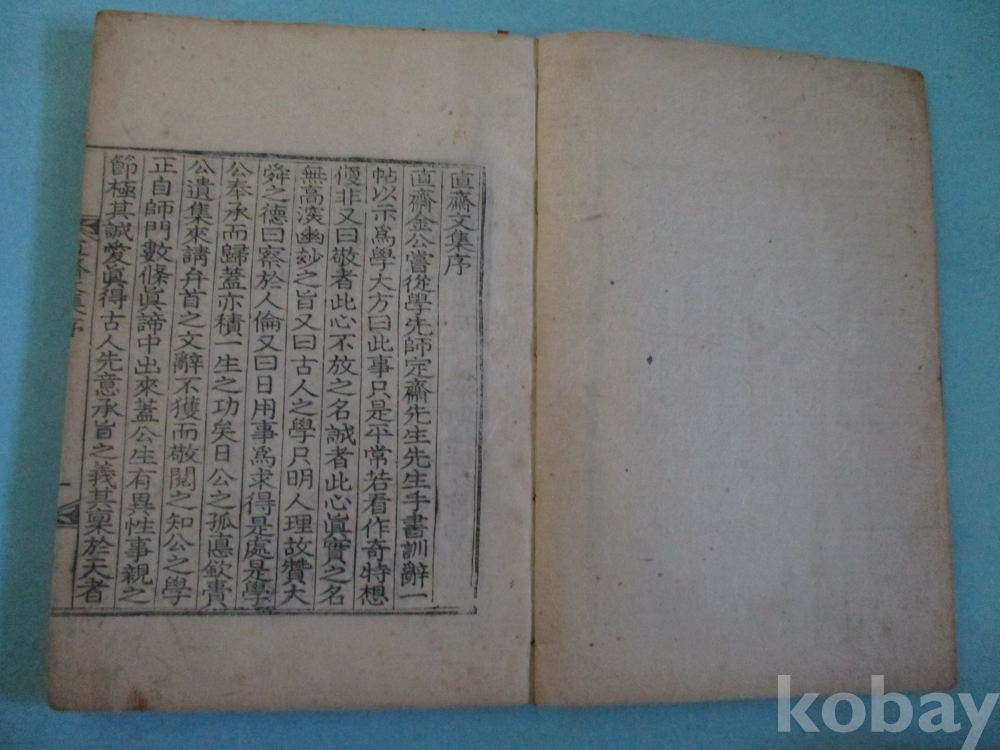 直齋文集序
直齋金公嘗從學先師定齋先生先生手書訓辭一
帖以示爲學大方曰此事只是平常若看作奇特想
便非又曰敬者此心不放之名誠者此心眞實之名
無高深幽妙之旨又曰古人之學只明人理故贊大
舜之德曰察於人倫又曰日用事爲求得是處是學
公奉承而歸蓋亦積一生之功矣日公之孤憙欽賷
公遺集來請弁首之文辭不獲而敬閱之知公之學
正自師門數條眞諦中出來蓋公生有異性事親之
節極其誠愛眞得古人先意承旨之義其稟於天者
kobay